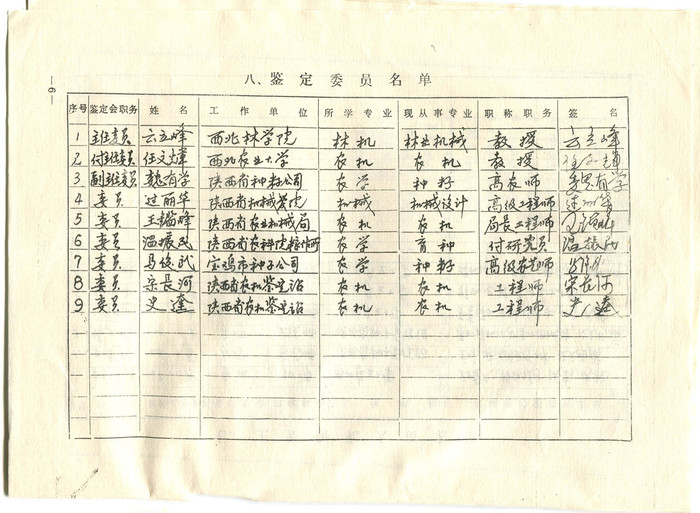 —9—
八、鉴定委员名单
序号 鉴定会职务 姓名 工作单位 所学专业 现从事专业 职称职务 签名
1 主任委员 云立峰 西北林学院 林机 林业机械 教授 云立峰
2 付主任委员 任文辉 西北农业大学 农机 农机 教授
3 副主任委员 魏有学 陕西省种籽公司 农学 种籽 高农师 魏有学
4 委员 过丽华 陕西省机械学院 机械 机械设计 高级工程师
5 委员 王锱峰 陕西省农业机械局 农机 农机 局长工程师
6 委员 温振民 陕西省农科院粮作所 农学 育种 付研究员 温振民
7 委员 马俊武 宝鸡市种子公司 农学 种籽 高级农艺师
8 委员 宋长河 陕西省农机鉴定站 农机 农机 工程师 宋长河
9 委员 史逢 陕西省农机鉴定站 农机 农机 工程师